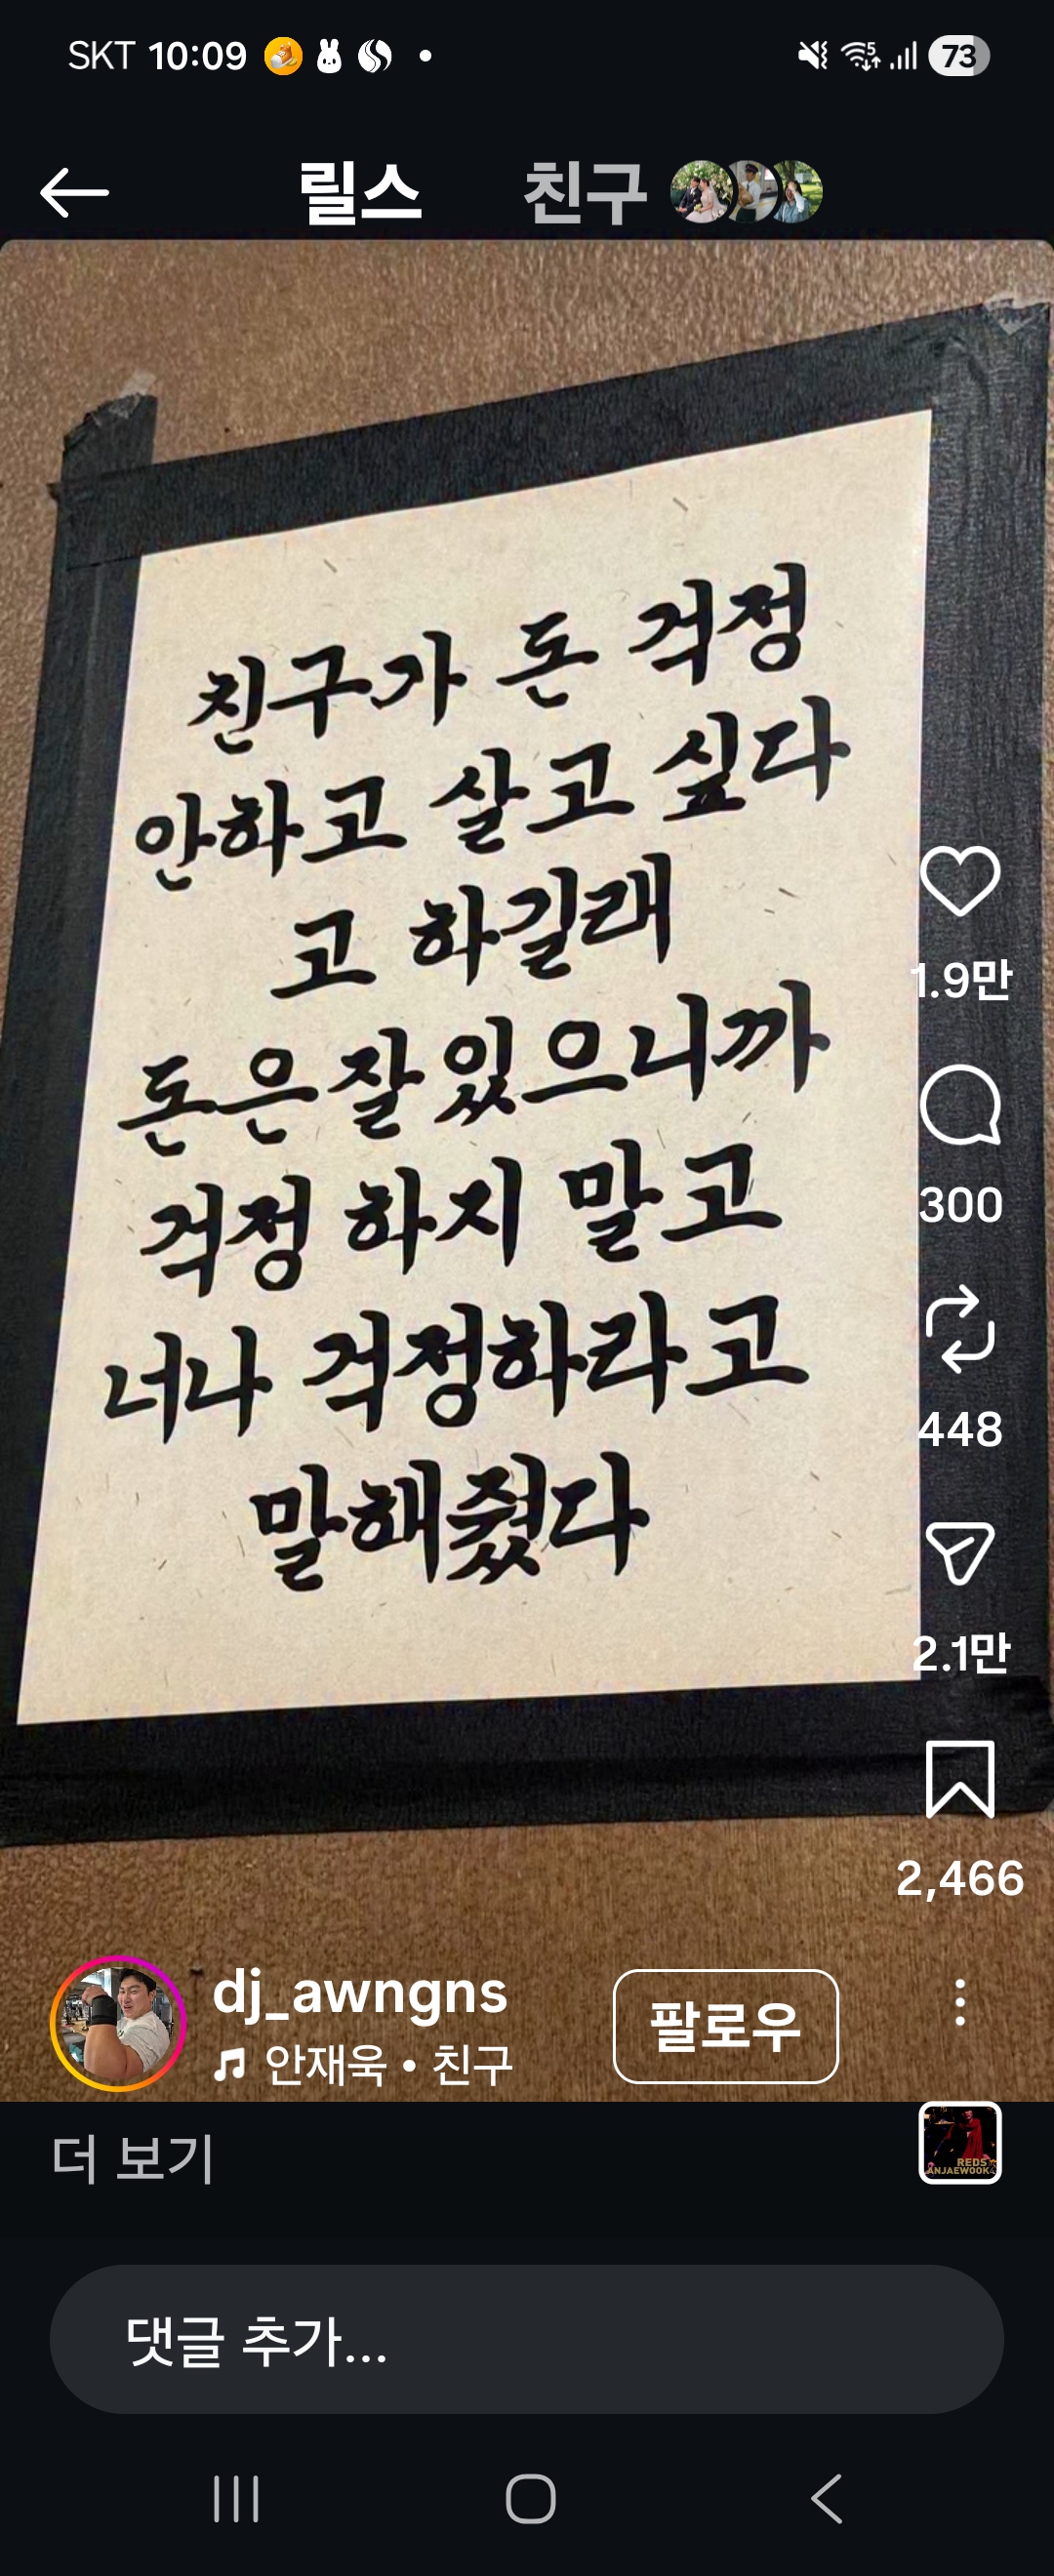 SKT 10:09
73
릴스 친구
친구가 돈 걱정
안하고 살고 싶다
고 하길래
돈은 잘 있으니까
걱정 하지 말고
너나 걱정하라고
말해줬다
1.9만
300
448
2.1만
2,466
dj_awngns
안재욱 • 친구
팔로우
더 보기
REDS
ANJAEWOOK
댓글 추가...